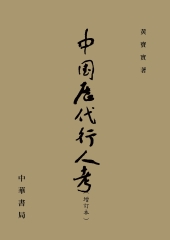 黄寶實著
中国歷代行人考
增訂本(一)
中華書局